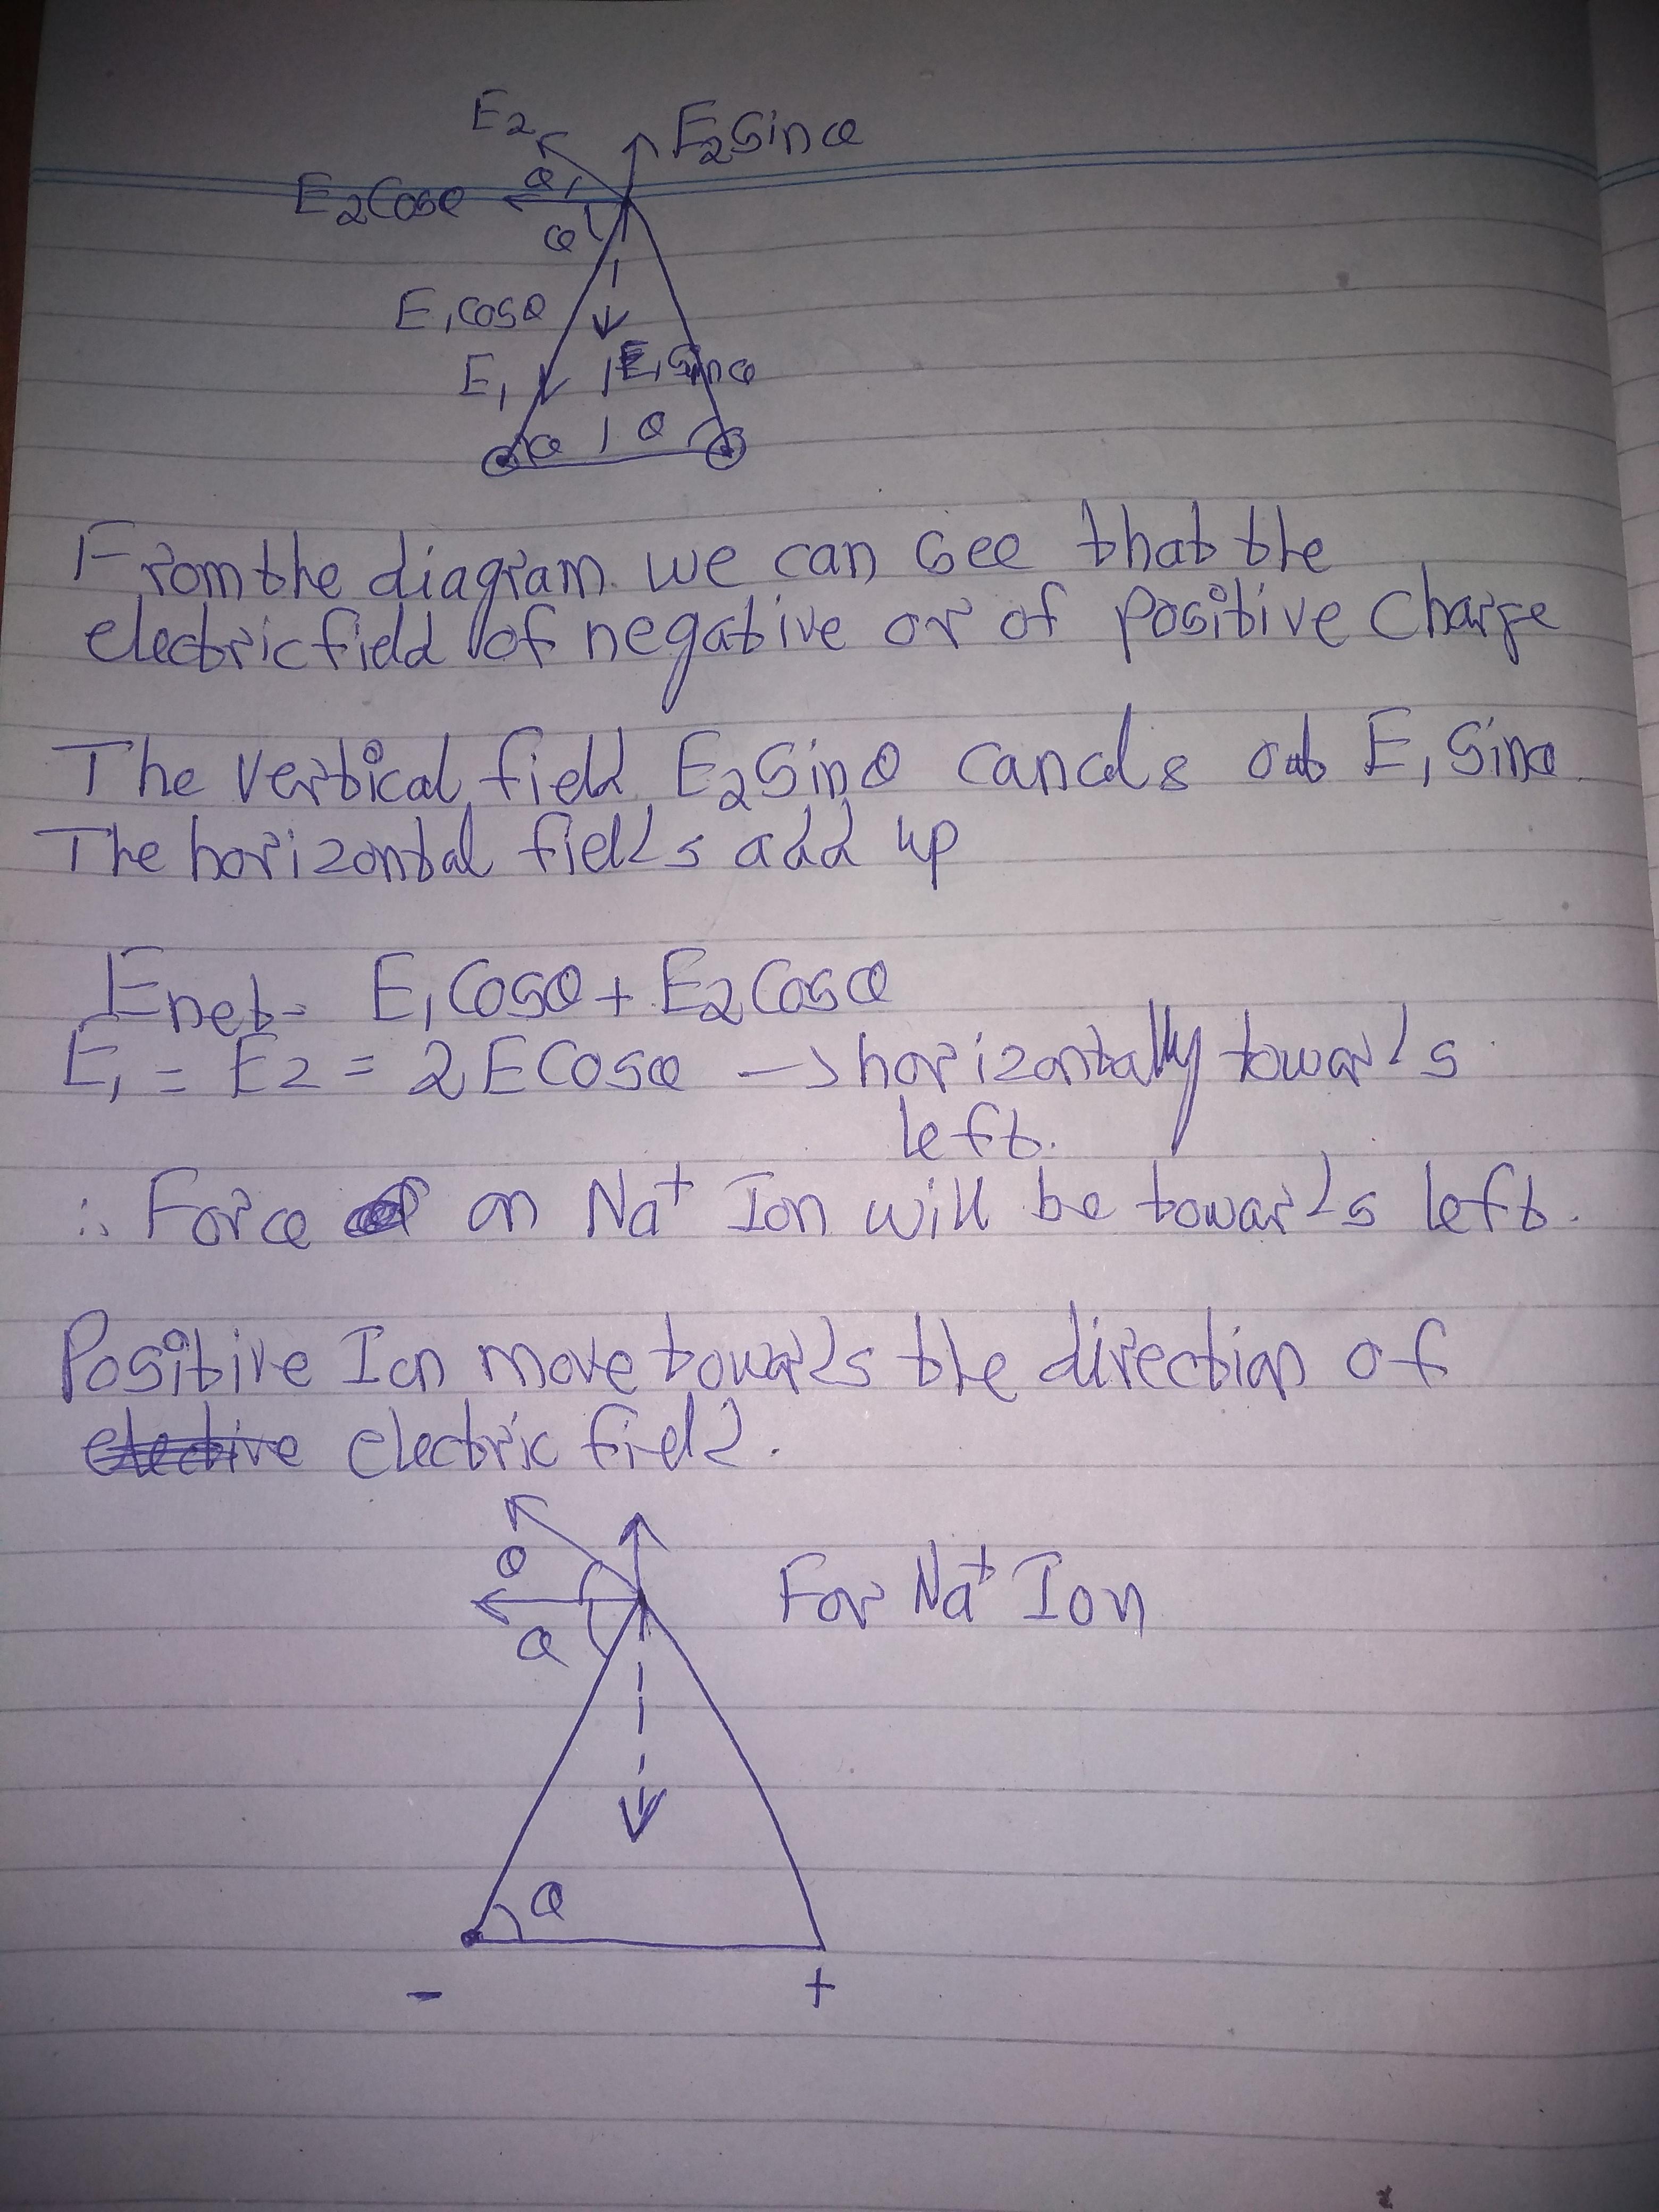 E2
E2Sinθ
E2Cosθ
θ
θ
E1cosθ
E1
E1Sinθ
θ
θ
From the diagram we can see that the
electric field of negative or of positive charge
The vertical field E2Sinθ cancels out E1Sinθ
The horizontal fields add up
Enet = E1Cosθ + E2Cosθ
E1 = E2 = 2ECosθ → horizontally towards
left.
∴ Force on Na+ Ion will be towards left.
Positive Ion move towards the direction of
electric field.
θ
For Na+ Ion
θ
θ
- +